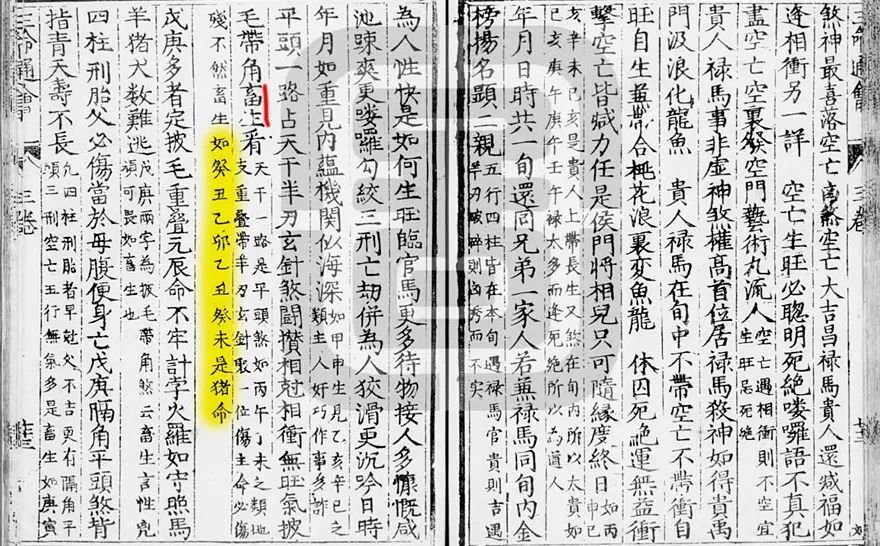 三命通會 三卷
煞神最喜落空亡 煞空亡大吉昌祿馬貴人還減福如
逢相衝另一詳 空亡生旺必聰明死絶喽囉語不真犯
盡空亡空裏發空門藝術九流人 空亡遇相衝則不空宜
生旺忌死絶
貴人祿馬事非虛神煞權高首位居祿馬殺神如得貴禹
門汲浪化龍魚 貴人祿馬在旬中不帶空亡不帶衝自
旺自生兼帶合桃花浪裏变魚龍 休囚死絶運無益衝
擊空亡皆減力任是侯門將相兒只可隨緣度終日 如丙
申巳
亥辛未己亥是貴人上帶長生又煞在旬內所以大貴如
己亥庚午庚午壬午祿太多而逢死絶所以為道人
年月日時共一旬還同兄弟一家人若兼祿馬同旬內金
榜揚名顕二親 五行四柱皆在本旬遇祿馬官貴則吉遇
羊刃破碎則凶秀而不实
為人性快是如何生旺臨官馬更多待物接人多慷慨咸
池踈爽更喽囉勾絞三刑亡劫併為人狡滑更沉吟日時
年月如重見內蘊機関似海深 如甲申生見乙亥辛巳之
類主人奸巧作事多詐
平頭一路占天干羊刃玄針煞鬪攢相尅相衝無旺氣披
毛帶角畜生看 天干一路是平頭煞如丙午丁未之類地
支重疊帶羊刃玄針聚一位傷主命必傷
殘不然畜生如癸丑乙卯乙丑癸未是猪命
戊庚多者定披毛重叠元辰命不牢計孛火羅如守照馬
羊猪犬数難逃 戊庚兩字為披毛帶角煞云畜生言性兇
頑可畏如畜生也
四柱刑胎父必傷當於母腹便身亡戊庚隔角平頭煞背
指青天壽不長 凢四柱刑胎者早尅父不吉更有隔角平
頭三刑空亡五行無氣多是畜生如庚寅
三命通會 三卷